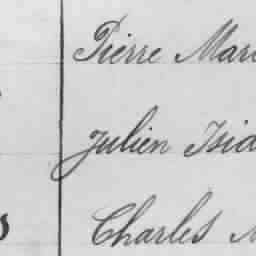 Pierre Mari
Julien Isid
Charles